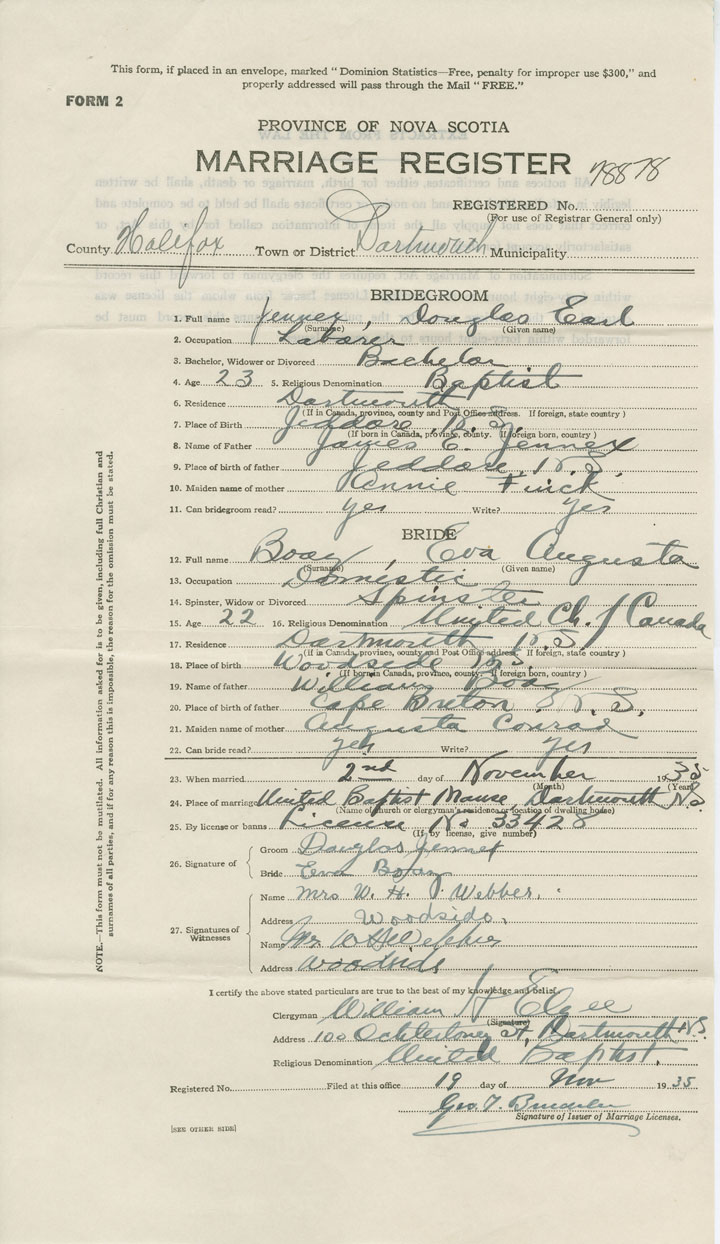 This form, if placed in an envelope, marked "Dominion Statistics—Free, penalty for improper use $300," and
properly addressed will pass through the Mail "FREE."
FORM 2
PROVINCE OF NOVA SCOTIA
MARRIAGE REGISTER 78878
REGISTERED No.
(For use of Registrar General only)
County Halifax Town or District Dartmouth Municipality
BRIDEGROOM
1. Full name Jennex, Douglas Earl
(Surname) (Given name)
2. Occupation Laborer
3. Bachelor, Widower or Divorced Bachelor
4. Age 23 5. Religious Denomination Baptist
6. Residence Dartmouth
(If in Canada, province, county and Post Office address. If foreign, state country)
7. Place of Birth Jeddore, N.S.
(If born in Canada, province, county. If foreign born, country)
8. Name of Father James E. Jennex
9. Place of birth of father Jeddore, N.S.
10. Maiden name of mother Annie
11. Can bridegroom read? yes Write? yes
BRIDE
12. Full name Boay, Eva Augusta
(Surname) (Given name)
13. Occupation Domestic
14. Spinster, Widow or Divorced Spinster
15. Age 22 16. Religious Denomination United Ch. of Canada
17. Residence Dartmouth N.S.
(If in Canada, province, county and Post Office address. If foreign, state country)
18. Place of birth Woodside N.S.
(If born in Canada, province, county. If foreign born, country)
19. Name of father William Boay
20. Place of birth of father Cape Breton N.S.
21. Maiden name of mother Augusta Conrad
22. Can bride read? yes Write? yes
23. When married 2nd day of November 1935
(Month) (Year)
24. Place of marriage United Baptist Manse, Dartmouth N.S.
(Name of church or clergyman's residence or location of dwelling house)
25. By license or banns License No 33428
(If by license, give number)
26. Signature of Groom Douglas Jennex
Bride Eva Boay
27. Signatures of Witnesses
Name Mrs W. H. Webber.
Address Woodside.
Name Mr W H Webber
Address Woodside
NOTE.—This form must not be mutilated. All information asked for is to be given, including full Christian and
surnames of all parties, and if for any reason this is impossible, the reason for the omission must be stated.
I certify the above stated particulars are true to the best of my knowledge and belief.
Clergyman William H Elgee
(Signature)
Address 100 Ochterloney St, Dartmouth N.S.
Religious Denomination United Baptist.
Registered No. Filed at this office 19 day of Nov 1935
Geo. T.
Signature of Issuer of Marriage Licenses.
[SEE OTHER SIDE]